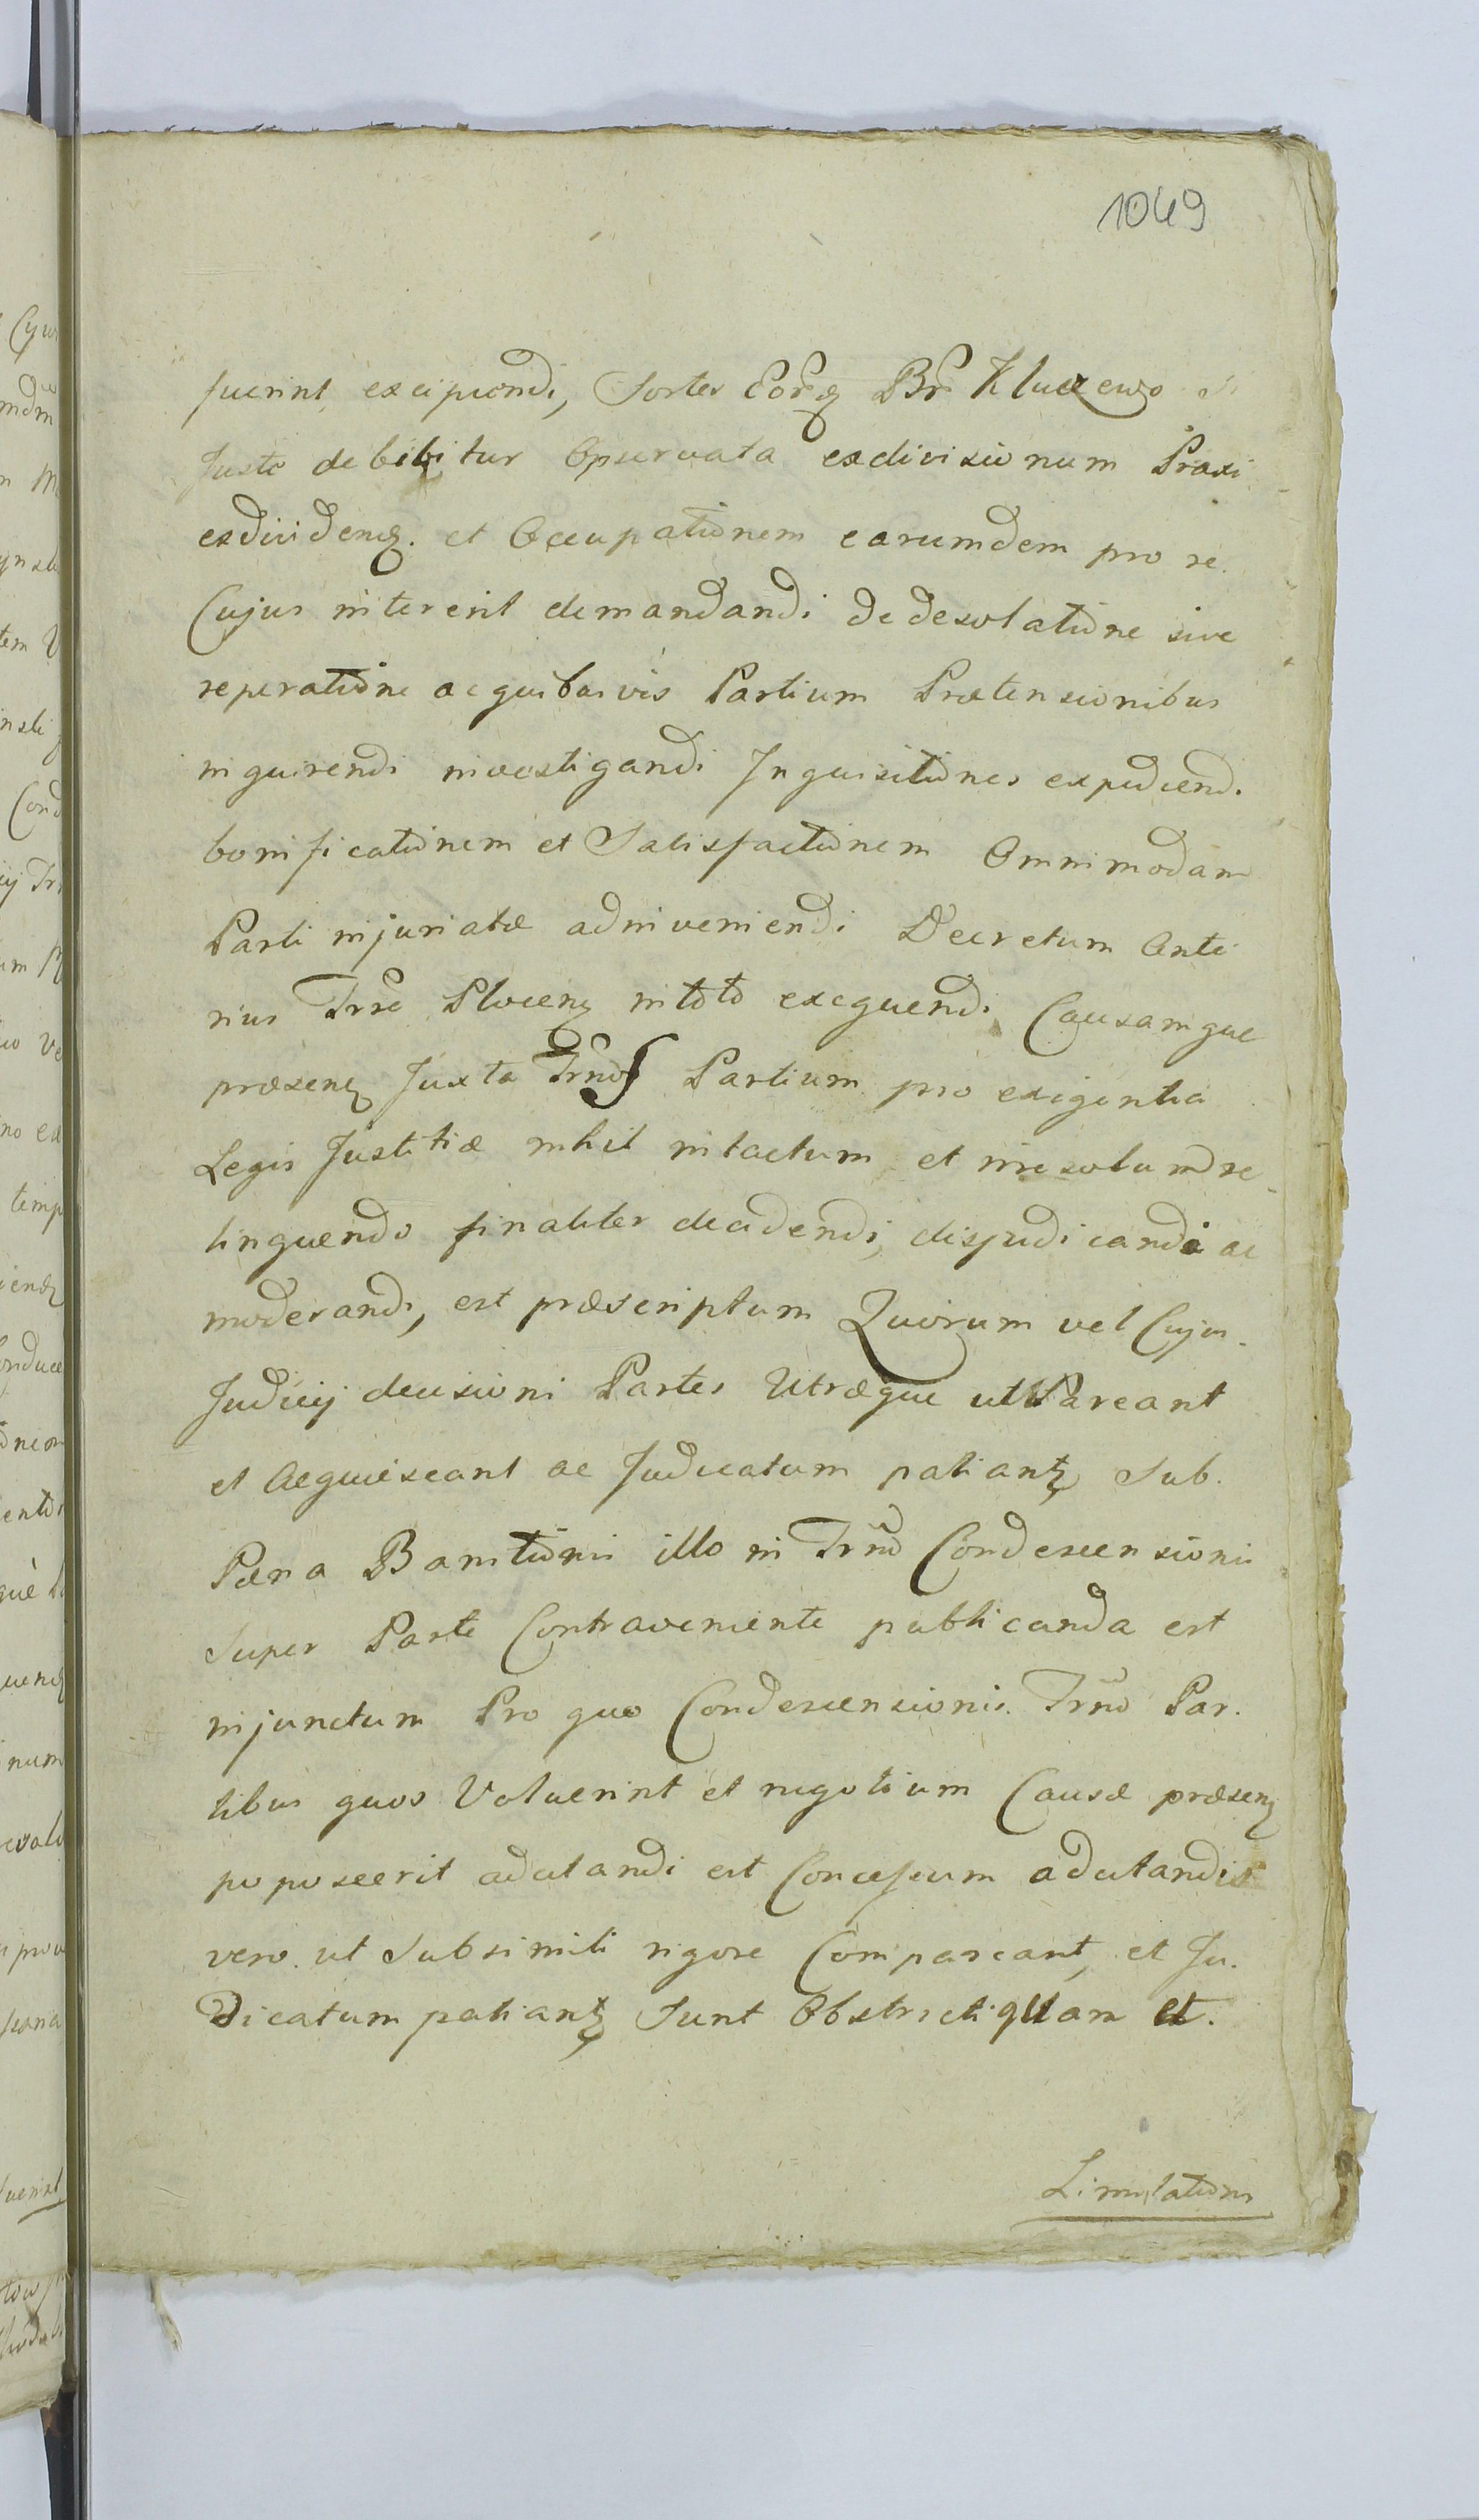 1049
fuerint excipiendi, Sortes Eorūq Br̃ Kluczewo Si
Juste debebitur Observata exdivisionum Praxi
exdividenq. et Occupationem earumdem pro re.
Cujus intererit demandandi de desolatione sive
reperatione ac quibusvis Partium Prætensionibus
inquirendi investigandi Inquisitiones expediend.
bonificationem et Satisfactionem Omnimodam
Parti injuriatæ adinveniendi Decretum Ante
rius Trre Plocenq in toto exequendi Causamque
præsenq Juxta Trnos Partium pro exigentia
Legis Justitiæ nihil intactum et irresolutum re-
linquendo finaliter decidendi, disjudicandi ac
moderandi, est præscriptum Quorum vel Cujus.
Judicij decisioni Partes Utræque ut Pareant
et Acquiescant ac Judicatum patiantq Sub.
Pæna Banitionis illo in Trno Condescensionis
Super Parte Contraveniente publicanda est
injunctum Pro quo Condescensionis. Trno Par.
tibus quos Voluerint et negotium Causæ præsenq
poposcerit adcitandi est Concessum adcitandis
vero. ut Sub simili rigore Compareant, et Ju.
dicatum patiantq Sunt Obstricti quam et.
Limitationis